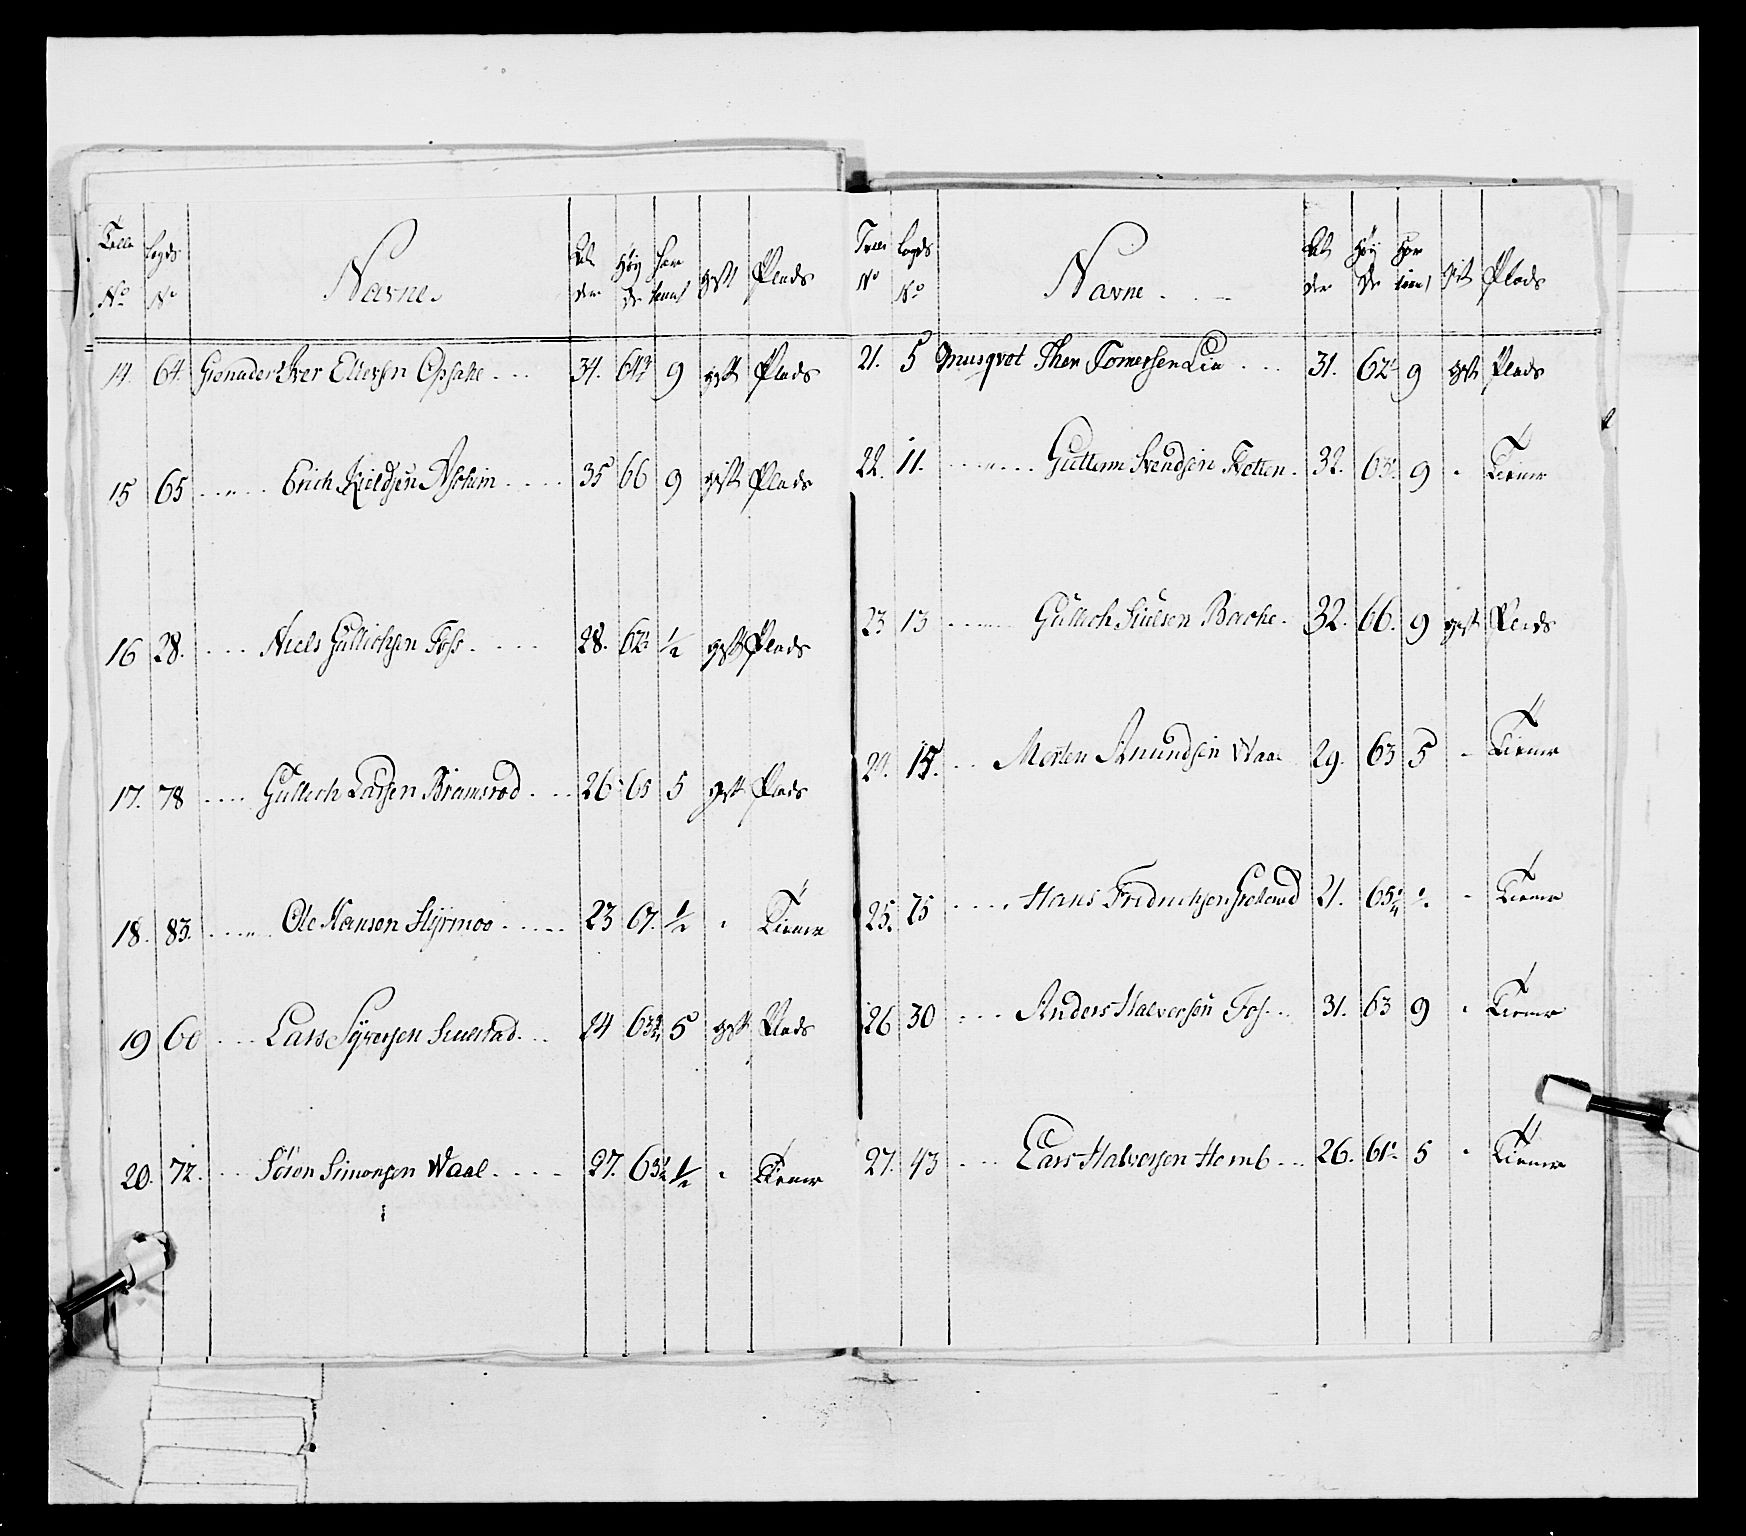 Tolle No Legds No Navne. Al der Høy de har tient gift Plads
14. 64. Grenader Iver Ellevsen Opsahe 34. 64½ 9 gift Plads
15 65 Erich Kieldsen Asheim 35 66 9 gift Plads
16 28. Niels Gullichsen Foss 28. 62½ ½ gift Plads
17. 78 Gullich Larsen Bramsrød 26 65 5 gift Plads
18. 83. Ole Hansen Styrmoe 23 67. ½ " Tiener
19 60 Lars Syversen 24 63¾ 5 gift Plads
20. 72. Søren Simonsen Waal 27. 63½ ½ " Tiener
Tolle No Legds No Navne Al der Høy de har tient gift Plads
21. 5 Musqvet Thor Tomersen Lia 31. 62½ 9 gift Plads
22. 11. Guttorm Svendsen Tvetten 32. 63½ 9 " Tiener
23 13 Gullich Bache 32. 66. 9 gift Plads
24. 15. Morten Amundsen Waal 29. 63 5 " Tiener
25. 75 Hans Fredrichsen 21. 65¼ " Tiener
26 30 Anders Halversen Fos 31. 63 9 " Tiener
27. 43 Lars Halversen Homb 26. 61½ 5 " Tiener